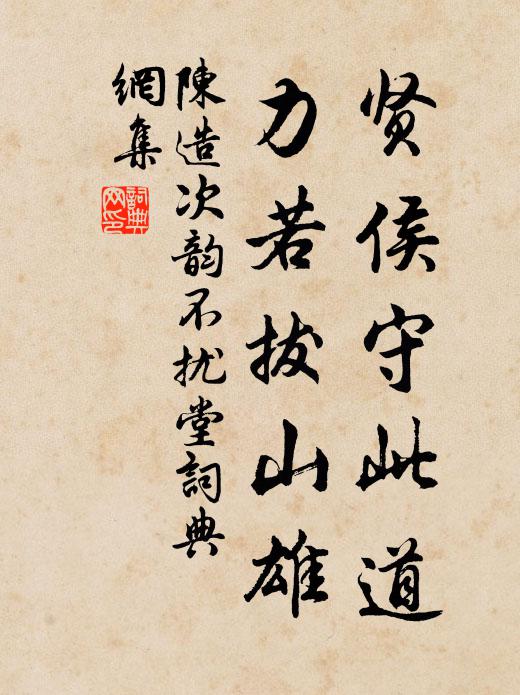 贤侯守此道
力若拔山雄
陳造次韵不扰堂詞典
網集
詞典
网印